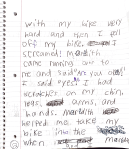 with my bike very
hard and then I fell
off my bike. I
screamed! Mardith
came running over to
me and said "Are you ok"
I said "yes" I had
scratches on my chin,
legs, arms, and
hands. Mardith
helped me take my
bike into the
when